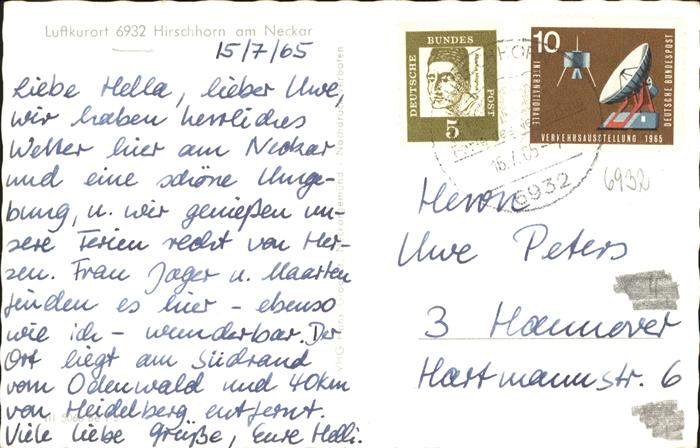 Luftkurort 6932 Hirschhorn am Neckar
15/7/65
Liebe Hella, lieber Uwe,
wir haben herrliches
Wetter hier am Neckar
und eine schöne Umge-
bung, u. wir genießen un-
sere Ferien recht von Her-
zen. Frau Jager u. Maarten
finden es hier - ebenso
wie ich - wunderbar. Der
Ort liegt am Südrand
vom Odenwald und 40km
von Heidelberg entfernt.
Viele liebe Grüße, Eure Helli.
DEUTSCHE
BUNDES
POST
5
10
INTERNATIONALE
VERKEHRSAUSSTELLUNG 1965
DEUTSCHE BUNDESPOST
6932
6932
Herrn
Uwe Peters
3 Hannover
Hartmannstr. 6